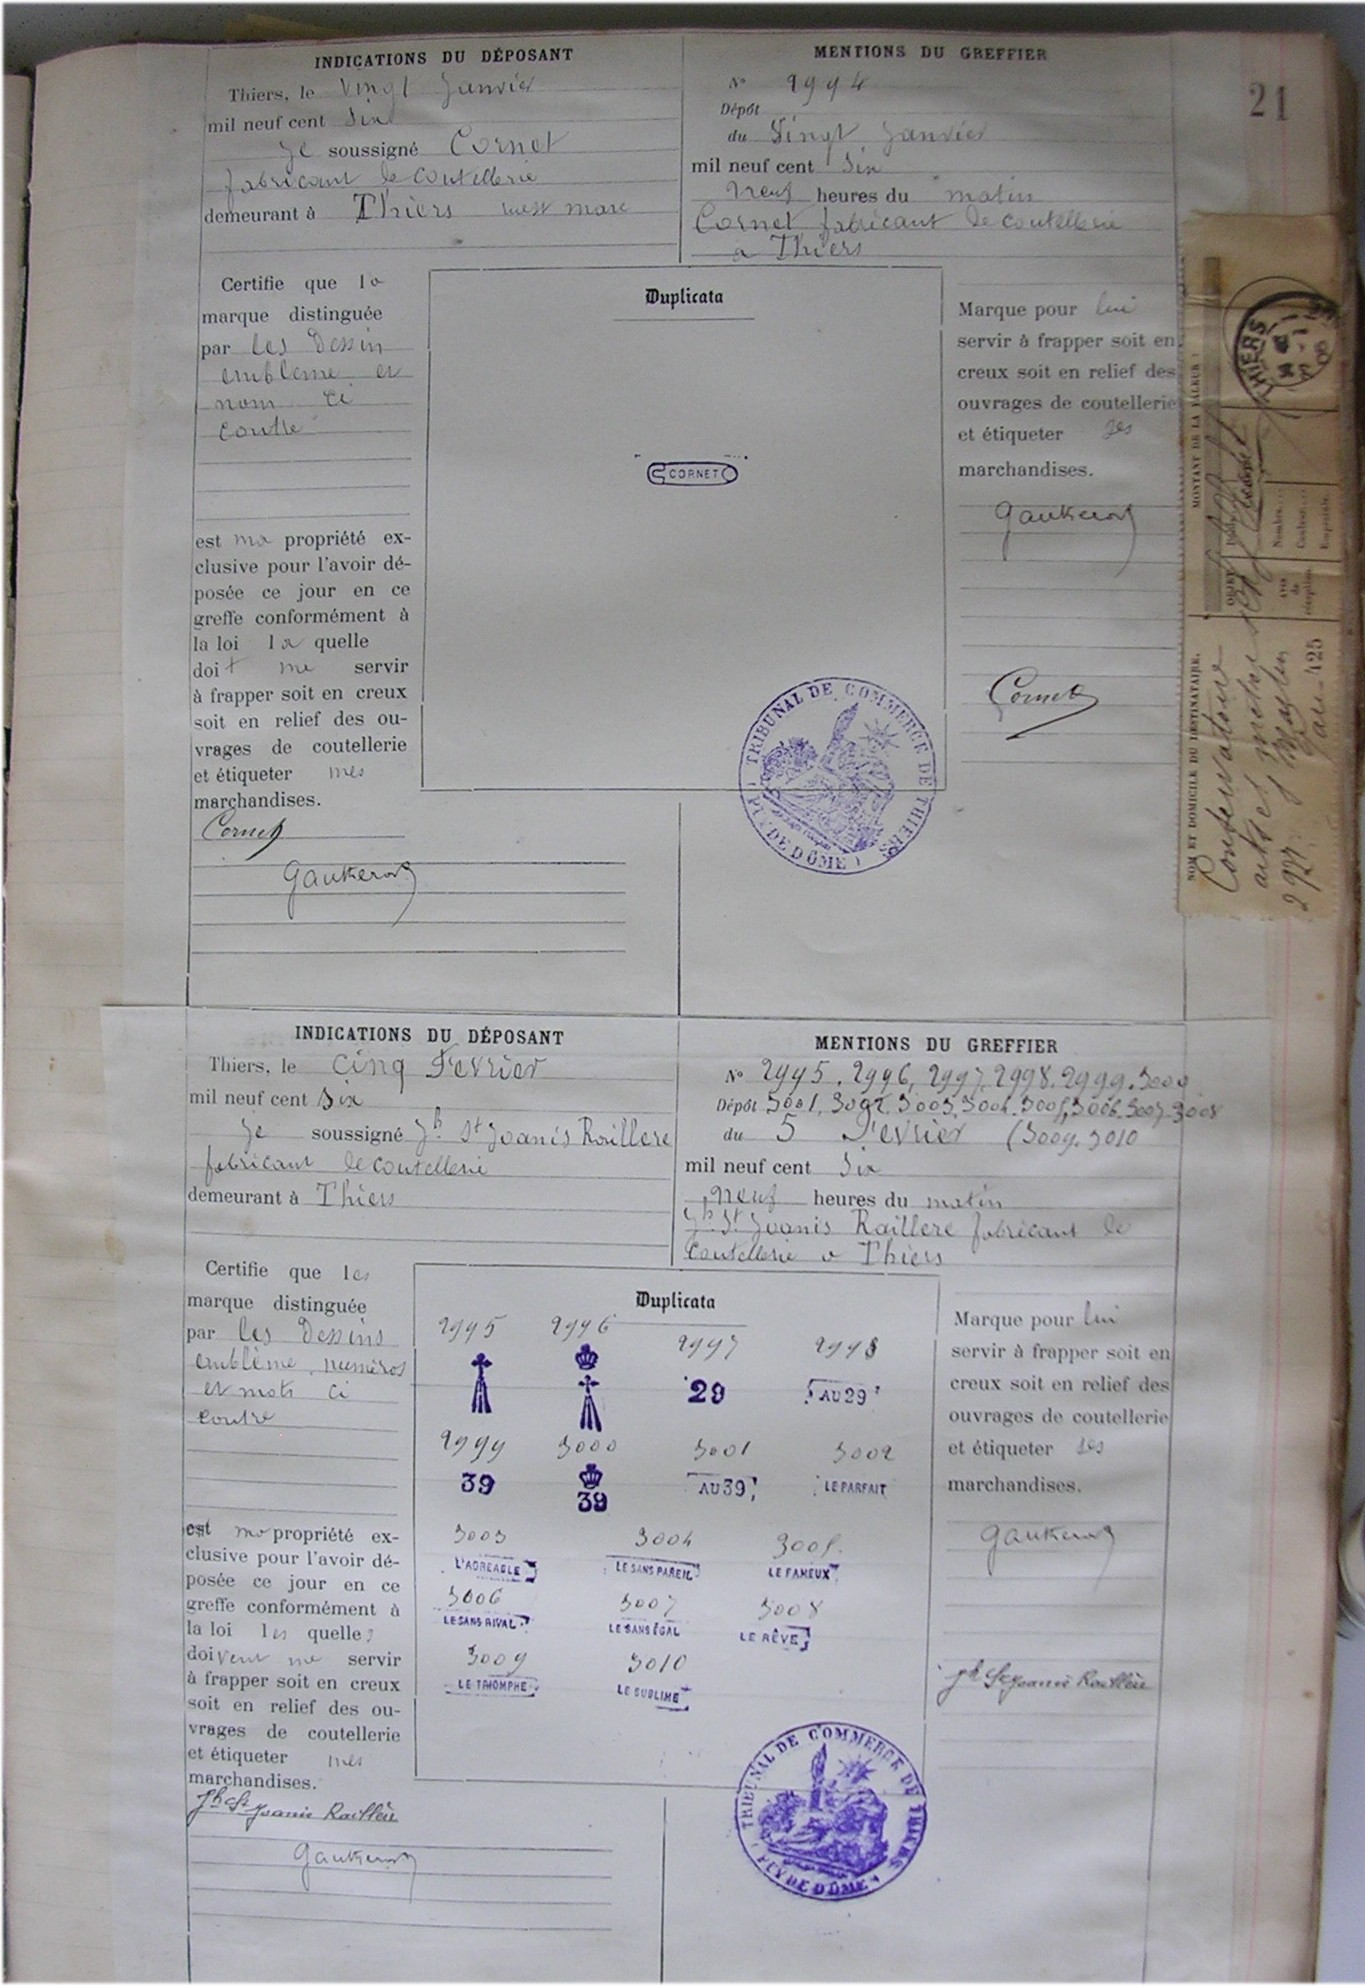 21
INDICATIONS DU DÉPOSANT
Thiers, le Vingt Janvier
mil neuf cent Six
Je soussigné Cornet
fabricant de coutellerie
demeurant à Thiers
MENTIONS DU GREFFIER
N° 2994
Dépôt
du Vingt Janvier
mil neuf cent Six
neuf heures du matin
Cornet fabricant de coutellerie
a Thiers
Certifie que la
marque distinguée
par les Dessin
embleme et
nom ci
contre
est ma propriété ex-
clusive pour l'avoir dé-
posée ce jour en ce
greffe conformément à
la loi la quelle
doit me servir
à frapper soit en creux
soit en relief des ou-
vrages de coutellerie
et étiqueter mes
marchandises.
Cornet
Duplicata
CORNET
TRIBUNAL DE COMMERCE DE THIERS
(PUY DE DÔME)
Marque pour lui
servir à frapper soit en
creux soit en relief des
ouvrages de coutellerie
et étiqueter ses
marchandises.
Cornet
MONTANT DE LA VALEUR
THIERS
OBJET
Nombre....
Couleur....
Empreinte.
Avis
de
réception.
NOM ET DOMICILE DU DESTINATAIRE.
Conservatoire
292 r St Martin
425
INDICATIONS DU DÉPOSANT
Thiers, le Cinq Fevrier
mil neuf cent Six
Je soussigné Jh St Joanis Raillere
fabricant de coutellerie
demeurant à Thiers
MENTIONS DU GREFFIER
N° 2995. 2996. 2997. 2998. 2999. 3000
Dépôt 3001. 3002. 3003. 3004. 3005. 3006. 3007. 3008
du 5 Fevrier (3009. 3010
mil neuf cent Six
neuf heures du matin
Jh St Joanis Raillere fabricant de
Coutellerie a Thiers
Certifie que les
marque distinguée
par les Dessins
emblême numéros
et mots ci
contre
est ma propriété ex-
clusive pour l'avoir dé-
posée ce jour en ce
greffe conformément à
la loi les quelles
doivent me servir
à frapper soit en creux
soit en relief des ou-
vrages de coutellerie
et étiqueter mes
marchandises.
Jh St Joanis Raillère
Duplicata
2995 2996 2997 2998
29 AU 29
2999 3000 3001 3002
39 39 AU 39 LE PARFAIT
3003 3004 3005
L'AGREABLE LE SANS PAREIL LE FAMEUX
3006 3007 3008
LE SANS RIVAL LE SANS ÉGAL LE RÊVE
3009 3010
LE TRIOMPHE LE SUBLIME
TRIBUNAL DE COMMERCE DE THIERS
(PUY DE DÔME)
Marque pour lui
servir à frapper soit en
creux soit en relief des
ouvrages de coutellerie
et étiqueter ses
marchandises.
Jh St Joanis Raillère